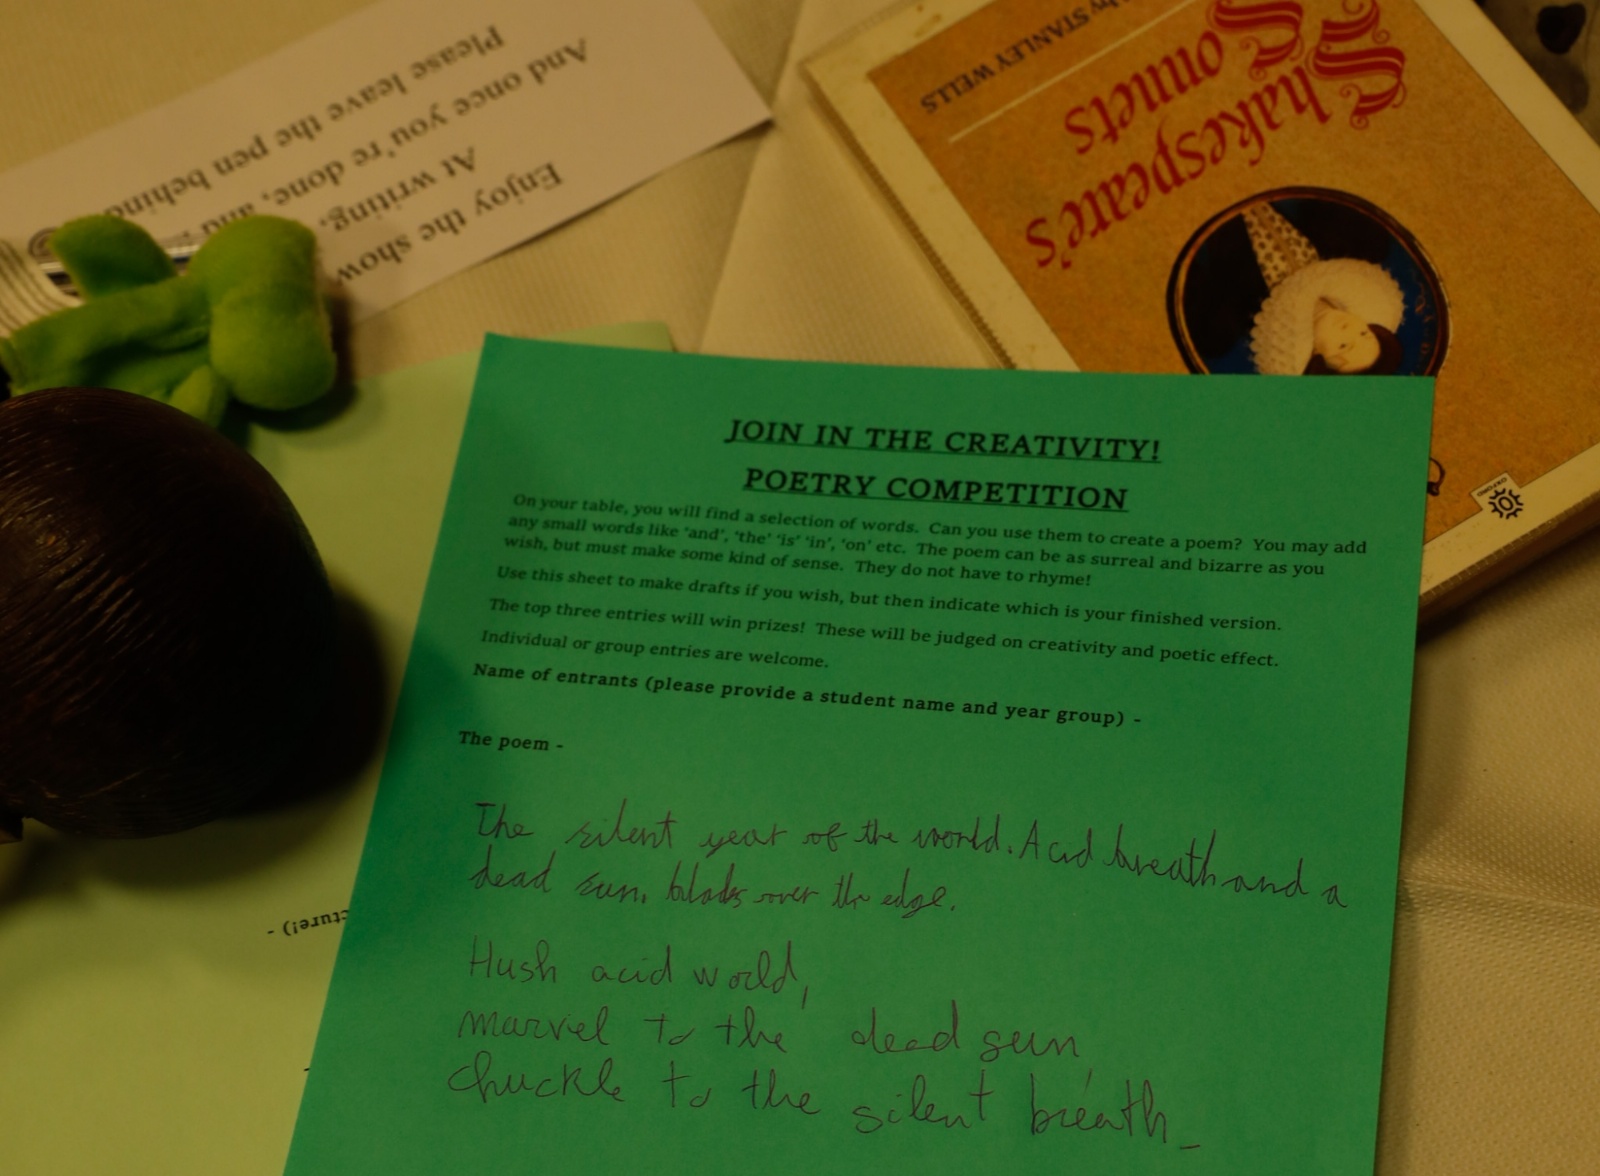 Please leave the pen behind
And once you're done, and
At writing,
Enjoy the show
by STANLEY WELLS
Shakespeare's
Sonnets
OXFORD
JOIN IN THE CREATIVITY!
POETRY COMPETITION
On your table, you will find a selection of words. Can you use them to create a poem? You may add
any small words like 'and', 'the' 'is' 'in', 'on' etc. The poem can be as surreal and bizarre as you
wish, but must make some kind of sense. They do not have to rhyme!
Use this sheet to make drafts if you wish, but then indicate which is your finished version.
The top three entries will win prizes! These will be judged on creativity and poetic effect.
Individual or group entries are welcome.
Name of entrants (please provide a student name and year group) -
The poem -
The silent year of the world. Acid breath and a
dead sun, over the edge.
Hush acid world,
marvel to the dead sun,
chuckle to the silent breath_
cture!) -